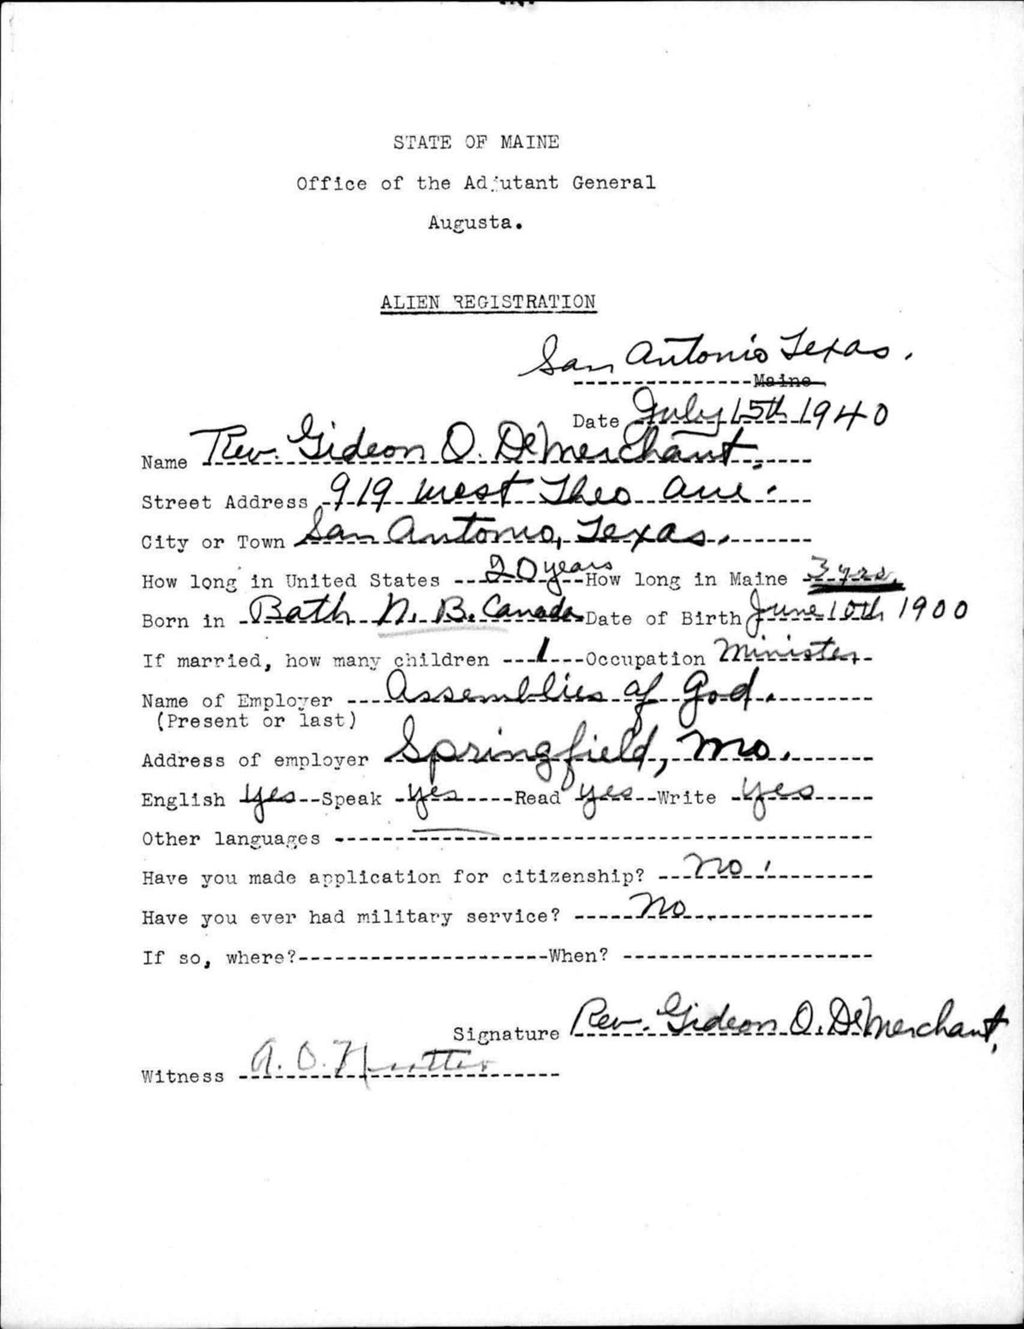 STATE OF MAINE
Office of the Adjutant General
Augusta.
ALIEN REGISTRATION
San Antonio Texas.
Maine
Date July 15th 1940
Name Rev. Gideon O. DeMerchant.
Street Address 919 West Theo Ave.
City or Town San Antonio, Texas.
How long in United States 20 years How long in Maine 3 yrs.
Born in Bath N. B. Canada Date of Birth June 10th 1900
If married, how many children 1 Occupation Minister
Name of Employer Assemblies of God.
(Present or last)
Address of employer Springfield, Mo.
English Yes Speak yes Read yes Write yes
Other languages
Have you made application for citizenship? No.
Have you ever had military service? No
If so, where? When?
Signature Rev. Gideon O. DeMerchant,
Witness A. O.